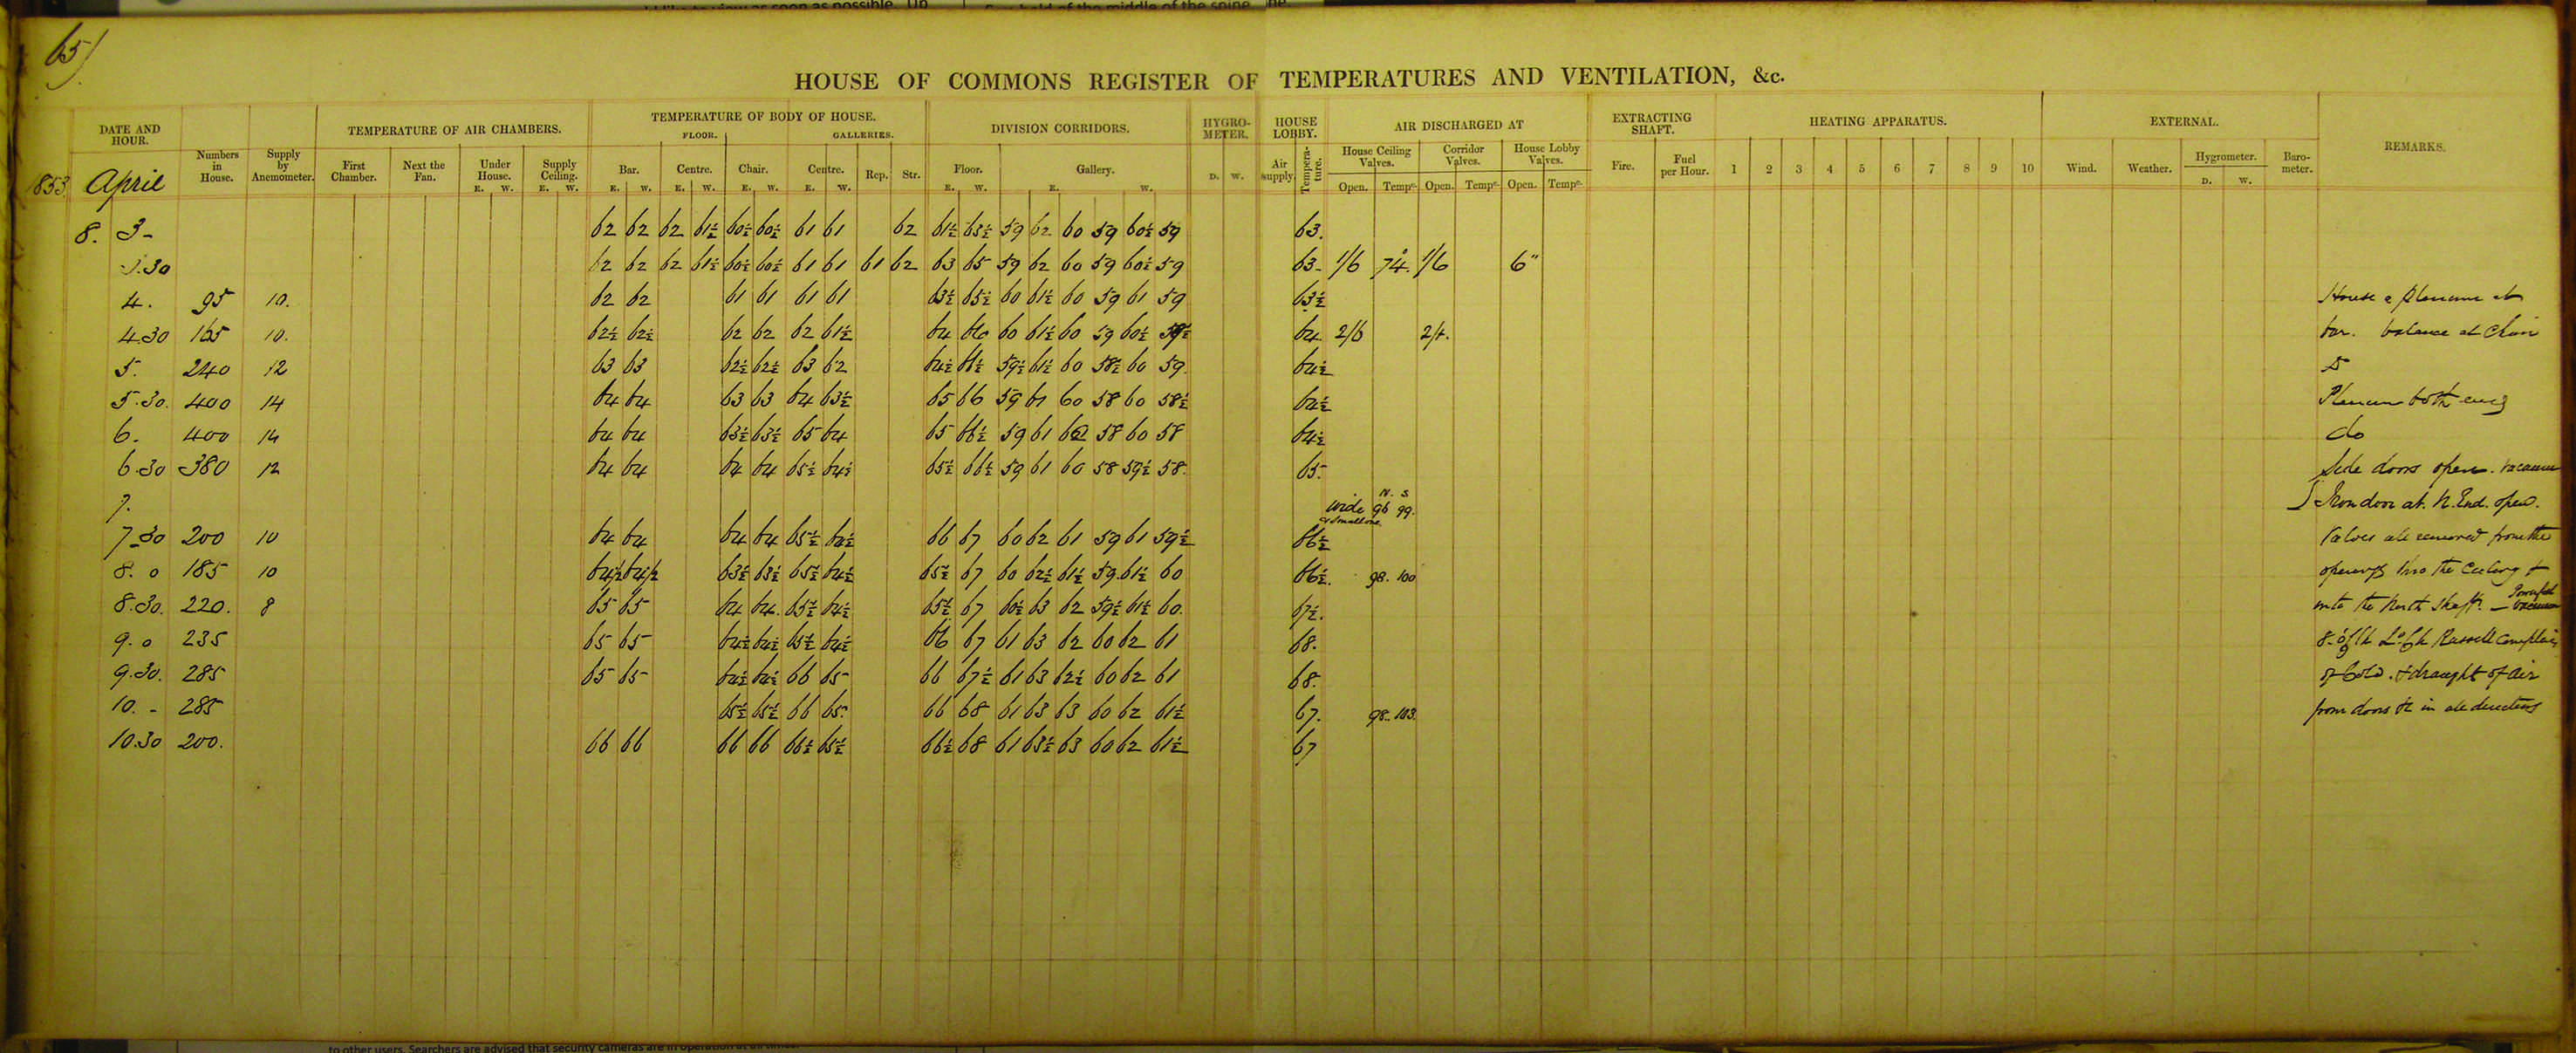 65)
HOUSE OF COMMONS REGISTER OF TEMPERATURES AND VENTILATION, &c.
DATE AND HOUR. Numbers in House. Supply by Anemometer. TEMPERATURE OF AIR CHAMBERS. First Chamber. Next the Fan. Under House. E. W. Supply Ceiling. E. W.
TEMPERATURE OF BODY OF HOUSE. FLOOR. GALLERIES. Bar. E. W. Centre. E. W. Chair. E. W. Centre. E. W. Rep. Str.
DIVISION CORRIDORS. Floor. E. W. Gallery. E. W.
HYGROMETER. D. W. HOUSE LOBBY. Air supply. Temperature.
AIR DISCHARGED AT House Ceiling Valves. Open. Tempe. Corridor Valves. Open. Tempe. House Lobby Valves. Open. Tempe.
EXTRACTING SHAFT. Fire. Fuel per Hour. HEATING APPARATUS. 1 2 3 4 5 6 7 8 9 10
EXTERNAL. Wind. Weather. Hygrometer. D. W. Barometer. REMARKS.
1853 April
8. 3- 62 62 62 61½ 60½ 60½ 61 61 62 61½ 63½ 59 62 60 59 60½ 59 63.
3.30 62 62 62 61½ 60½ 60½ 61 61 61 62 63 65 59 62 60 59 60½ 59 63- 1/6 74. 1/6 6"
4. 95 10. 62 62 61 61 61 61 63½ 65½ 60 61½ 60 59 61 59 63½ House a plenum at
4.30 165 10. 62½ 62½ 62 62 62 61½ 64 66 60 61½ 60 59 60½ 64. 2/6 bar. balance at Chair
5. 240 12 63 63 62½ 62½ 63 62 64½ 66½ 59½ 61½ 60 58½ 60 59. 64½
5.30. 400 14 64 64 63 63 64 63½ 65 66 59 61 60 58 60 58½ 64½ Plenum both ends
6. 400 14 64 64 63½ 63½ 65 64 65 66½ 59 61 60 58 60 58 64½ do
6.30 380 12 64 64 64 64 65½ 64½ 65½ 66½ 59 61 60 58 59½ 58. 65. Side doors open. vacuum
7. wide & small one. N. S. 96 99. Iron door at N. End. open.
7.30 200 10 64 64 64 64 65½ 64½ 66 67 60 62 61 59 61 59½ 66½ Valves all removed from the
8.0 185 10 64½ 64½ 63½ 63½ 65½ 64½ 65½ 67 60 62½ 61½ 59 61½ 60 66½. 98. 100 openings into the Ceiling &
8.30. 220. 8 65 65 64 64. 65½ 64½ 65½ 67 60½ 63 62 59½ 61½ 60. 67½. into the North Shaft. — Powerful vacuum
9.0 235 65 65 64½ 64½ 65½ 64½ 66 67 61 63 62 60 62 61 68. Russell complains
9.30. 285 65 65 64½ 64½ 66 65 66 67½ 61 63 62½ 60 62 61 68. of Cold. & draught of air
10.- 285 65½ 65½ 66 65. 66 68 61 63 63 60 62 61½ 67. 98. 103. from doors &c in all directions
10.30 200. 66 66 66 66 66½ 65½ 66½ 68 61 63½ 63 60 62 61½ 67